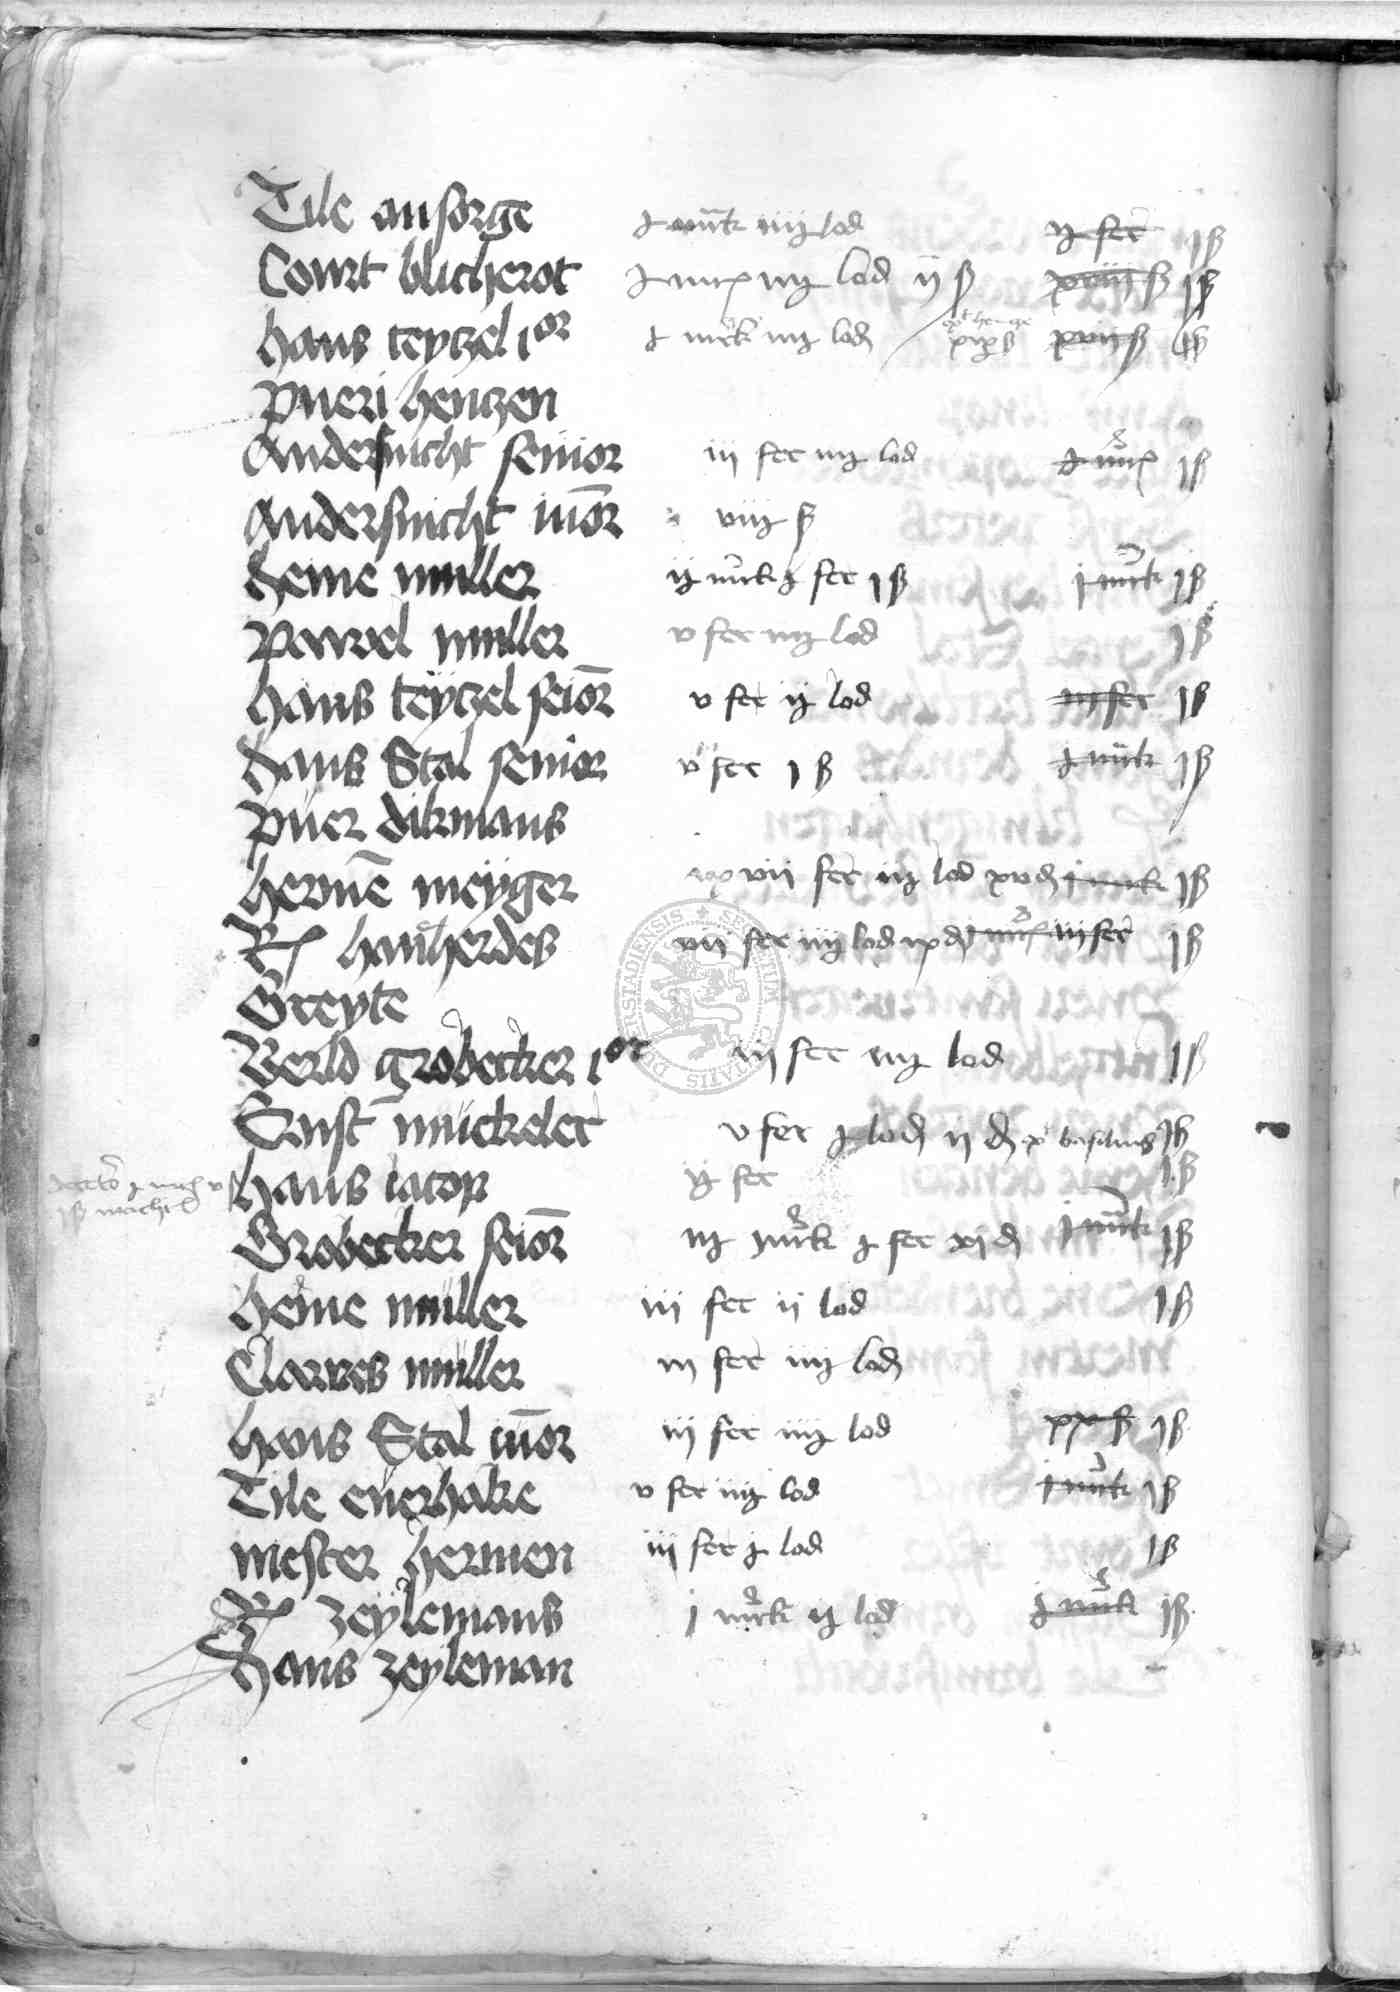 Tile ansorge j mrk iiij lod ij fer j ß
Court blicherot j mrc iiij lod ij ß xviij ß j ß
hans teytzel ior j mrk iiij lod xix ß xviij ß j ß
pueri hentzen
Andersnicht senior iij fer iiij lod j mrc j ß
Andersnicht iuor viij ß
heine muller ij mrk j fer j ß j mrk j ß
pawel muller v fer iij lod j ß
hans teytzel seior v fer ij lod iij fer j ß
hans Stal senior v fer j ß j mrk j ß
puer dikmans
hermē meyger vij fer iij lod xv d j mrk j ß
Rc hanherdes vij fer iiij lod ix d iij fer j ß
Greyte
Berld grobecker ior iij fer iiij lod j ß
Carst muckelet v fer j lod ij d basilius j ß
hans iacop ij fer j ß
Grobecker seior iij mrk j fer xj d j mrk j ß
heine muller iij fer ij lod j ß
Clawes muller iij fer iiij lod
hans Stal iuor iij fer iiij lod xx ß j ß
Tile euerhake v fer iiij lod j mrk j ß
mester hermen iij fer j lod j ß
Rc zeylemans j mrk ij lod j mrk j ß
hans zeyleman